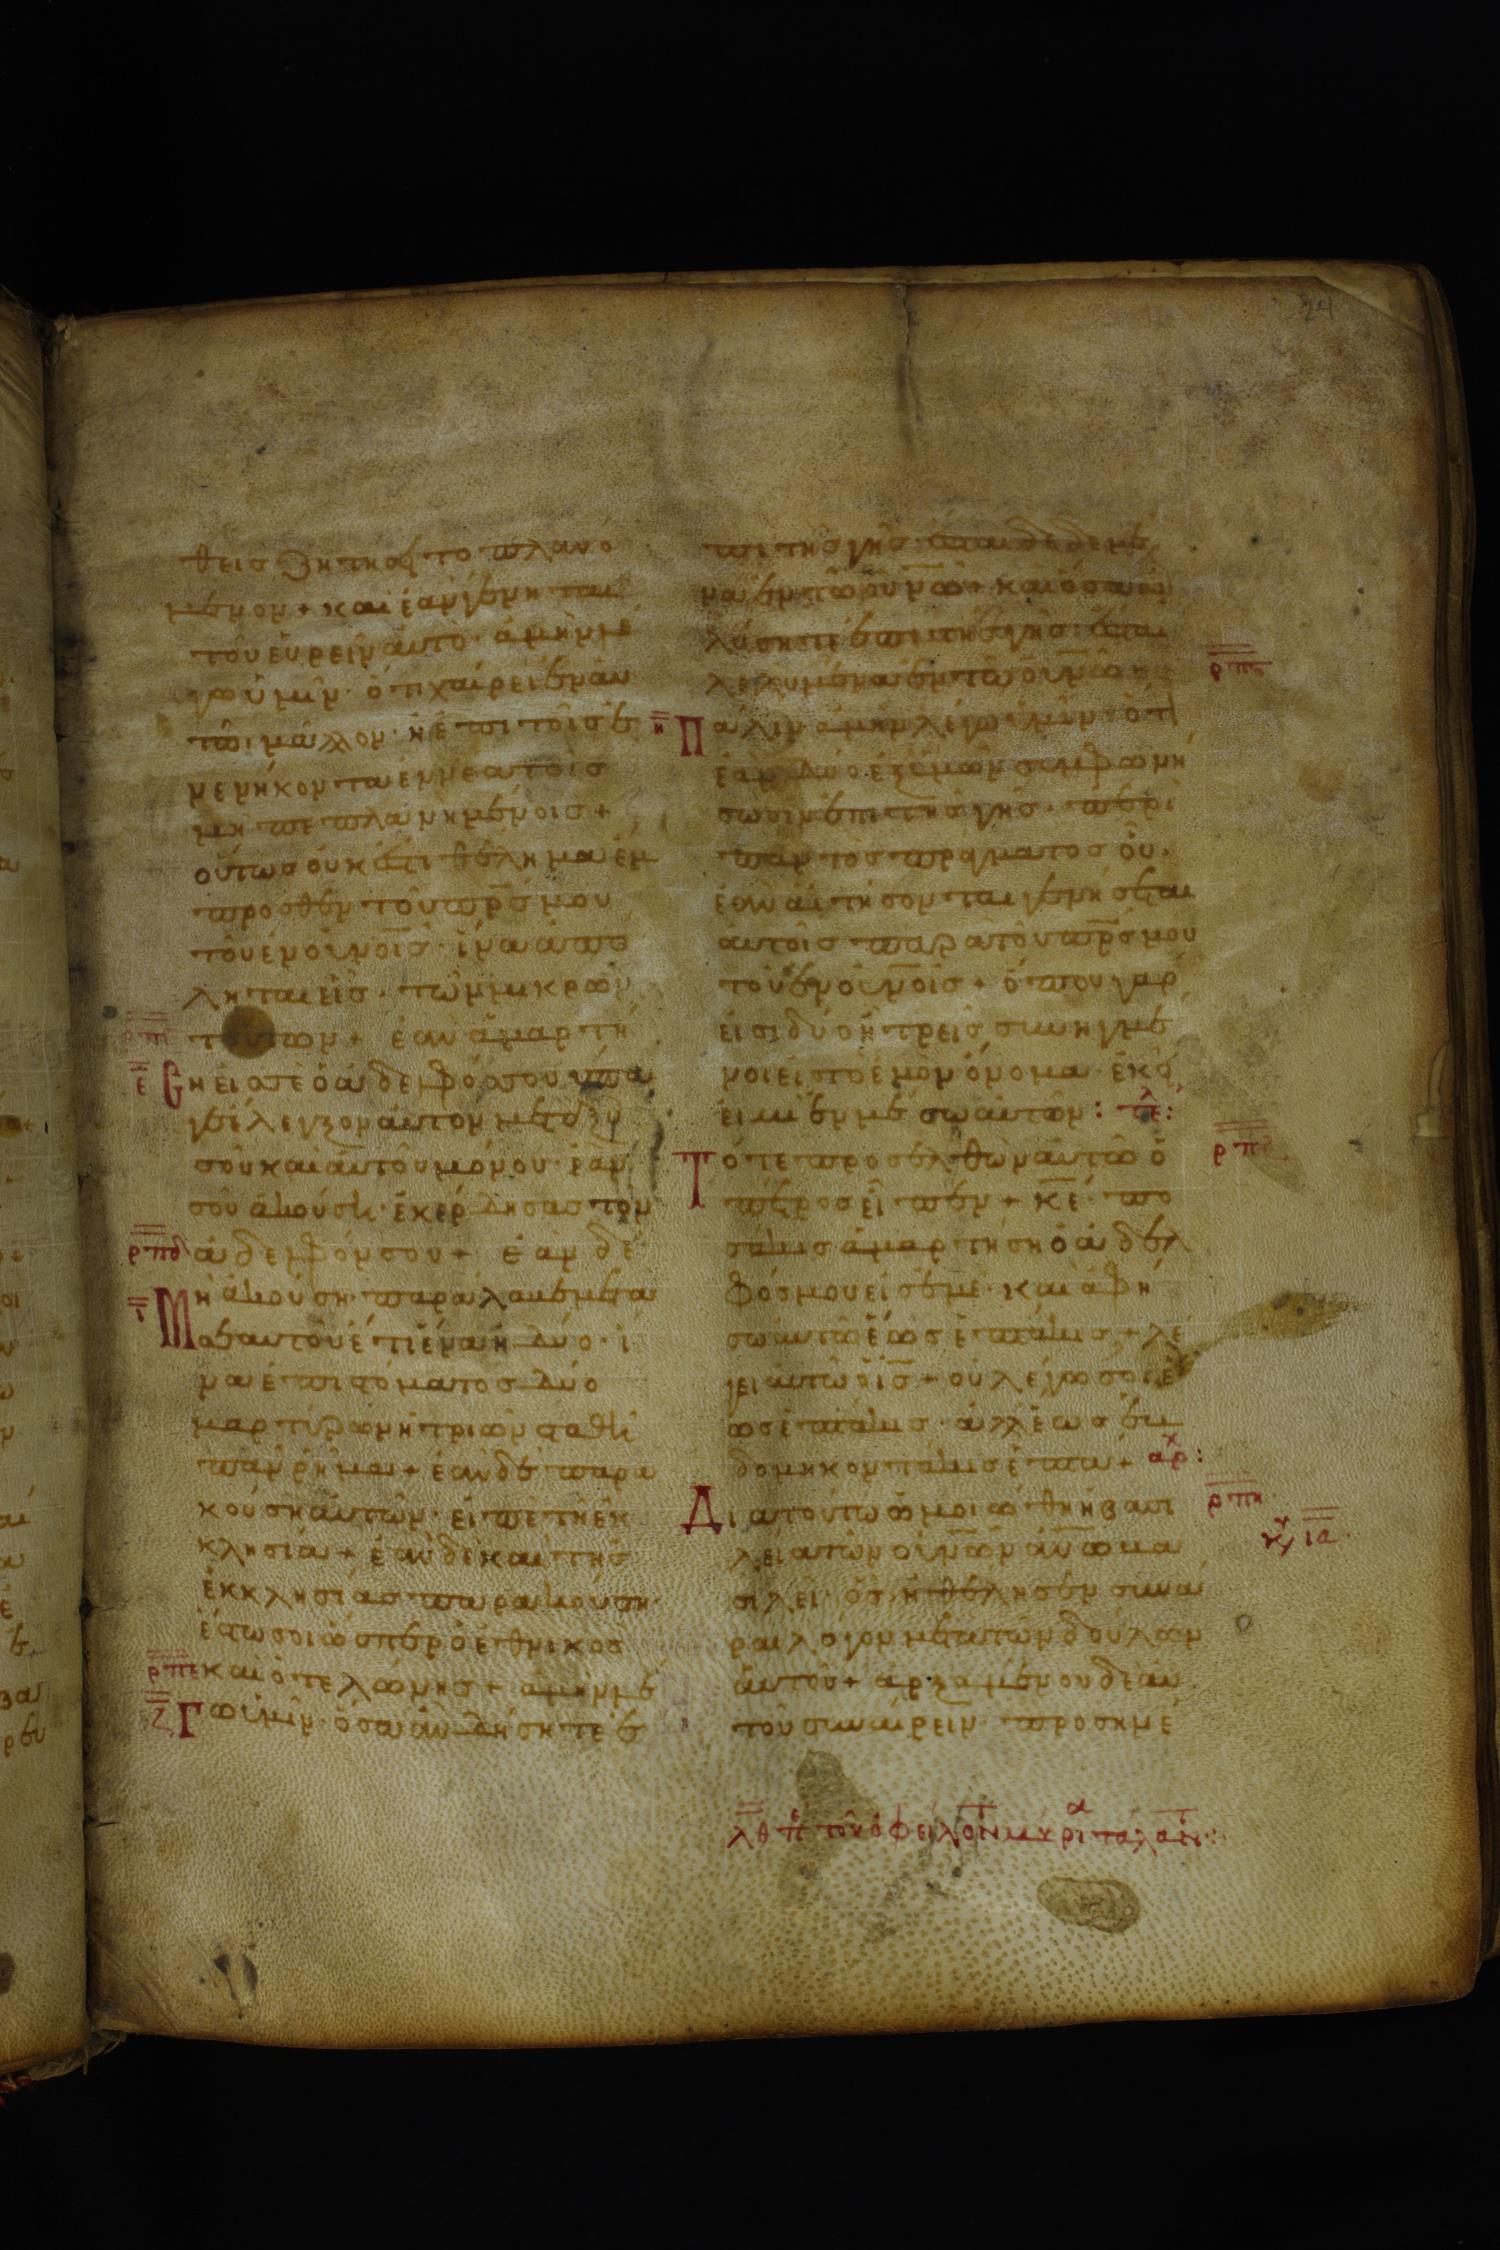 24
θεὶς ζητῆσαι τὸ πλανώ
μενον + καὶ ἐὰν γένηται
τοῦ εὑρεῖν αὐτό· ἀμὴν λέ
γω ὑμῖν· ὅτι χαίρει ἐν αὐ
τῶι μᾶλλον· ἢ ἐπι τοῖς ἐ
νενήκοντα ἐννέα τοῖς
μὴ πεπλανημένοις +
οὕτως οὐκ ἔστι θέλημα ἐμ
προσθεν τοῦ πρσ μου
τοῦ ἐν οὐνοῖς· ἵνα ἀπο
ληται εἷς· τῶν μικρῶν
τούτων + ἐὰν ἁμαρτή
ε Σηει στε ὁ ἀδελφός σου ὕπα
γε ἔλεγξον αὐτὸν μεταξὺ
σοῦ καὶ αὐτοῦ μόνου· ἐάν
σου ἀκούση· ἐκέρδησας τὸν
ρπδ ἀδελφόν σου + ἐὰν δὲ
Μὴ ἀκούση· παράλαβε με
τα σεαυτοῦ ἔτι ἕνα ἢ δύο· ἵ
να ἐπι στόματος δύο
μαρτύρων ἢ τριῶν σταθῆ
πᾶν ρῆμα + ἐὰν δὲ παρα
κούση αὐτῶν· εἰπὲ τῆ ἐκ
κλησία + ἐὰν δὲ καὶ τῆς
ἐκκλησίας παρακούση·
ἔστω σοι ὥσπερ ὁ ἐθνικὸς
ρπε καὶ ὁ τελώνης + ἀμὴν λέ
ζ Γω ὑμῖν· ὅσα ἂν δήσητε ἐ
πι τῆς γῆς ἔσται δεδεμέ
να ἐν τῶ οὐνῶ + καὶ ὅσα ἐὰν
λύσητε ἐπι τῆς γῆς· ἔσται
λελυμένα ἐν τῶ οὐνῶ +
ρπς
η Πάλιν ἀμὴν λέγω ὑμῖν· ὅτι
ἐὰν δύο ἐξ ὑμῶν συμφωνή
σωσιν ἐπι τῆς γῆς· περι
παντὸς πράγματος οὗ·
ἐὰν αἰτήσονται γενήσεται
αὐτοῖς παρα τοῦ πρσ μου
τοῦ ἐν οὐνοῖς + ὅπου γάρ
εἰσι δύο ἢ τρεῖς συνηγμέ
νοι εἰς τὸ ἐμὸν ὄνομα· ἐκεῖ
εἰμι ἐν μέσω αὐτῶν : τε:
ρπζ
Τότε προσελθὼν αὐτῶ ὁ
πέτρος εἶπεν + κε· πο
σάκις ἁμαρτήση ὁ ἀδελ
φός μου εἰς ἐμὲ· καὶ ἀφή
σω αὐτῶ ἕως ἑπτάκις + λέ
γει αὐτῶ ὁ ις + οὐ λέγω σοι ἕ
ως ἑπτάκις· ἀλλ ἕως ἑβ
δομηκοντάκις ἑπτα + αρχ:
ρπη
Διατοῦτο ὡμοιώθη ἡ βασι
κυ ια
λεία τῶν οὐνῶν ἀνω βα
σιλεῖ· ὃς ἠθέλησεν συνα
ραι λόγον μετα τῶν δούλων
αὐτοῦ + ἀρξαμένου δὲ αὐ
τοῦ συναίρειν· προσηνέ
λθ πε τοῦ ὀφείλοντ μυρία τάλαντ: